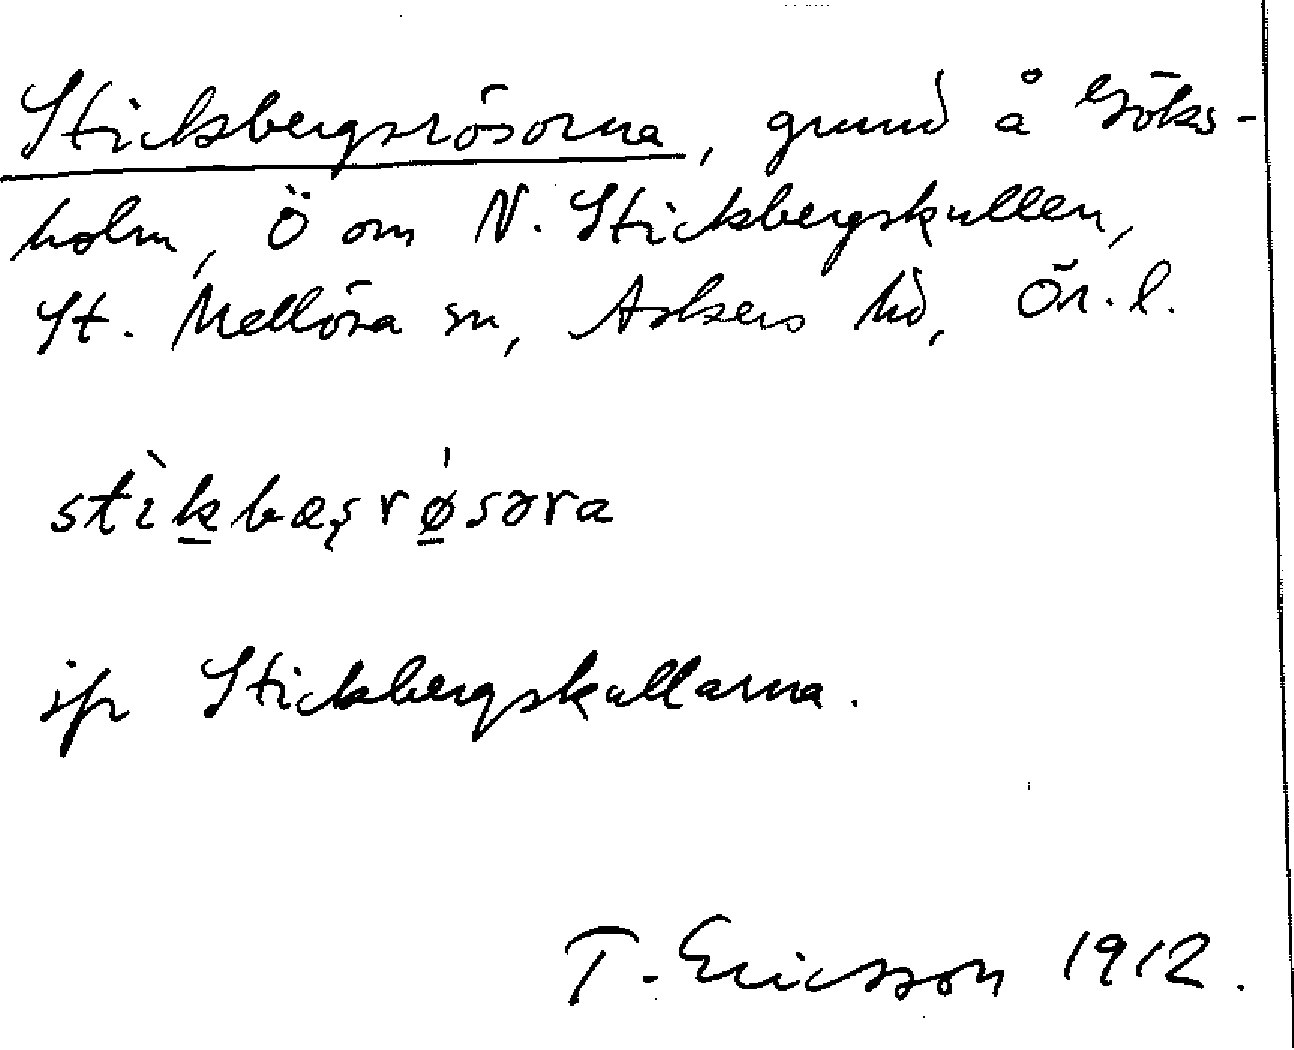 Stickbergsrösorna, grund å Göks-
holm, Ö om N. Stickbergskullen,
St. Mellösa sn, Askers hd, Ör. l.
stìk̲bæʂrǿ̲səra
jfr Stickbergskullarna.
T. Ericsson 1912.